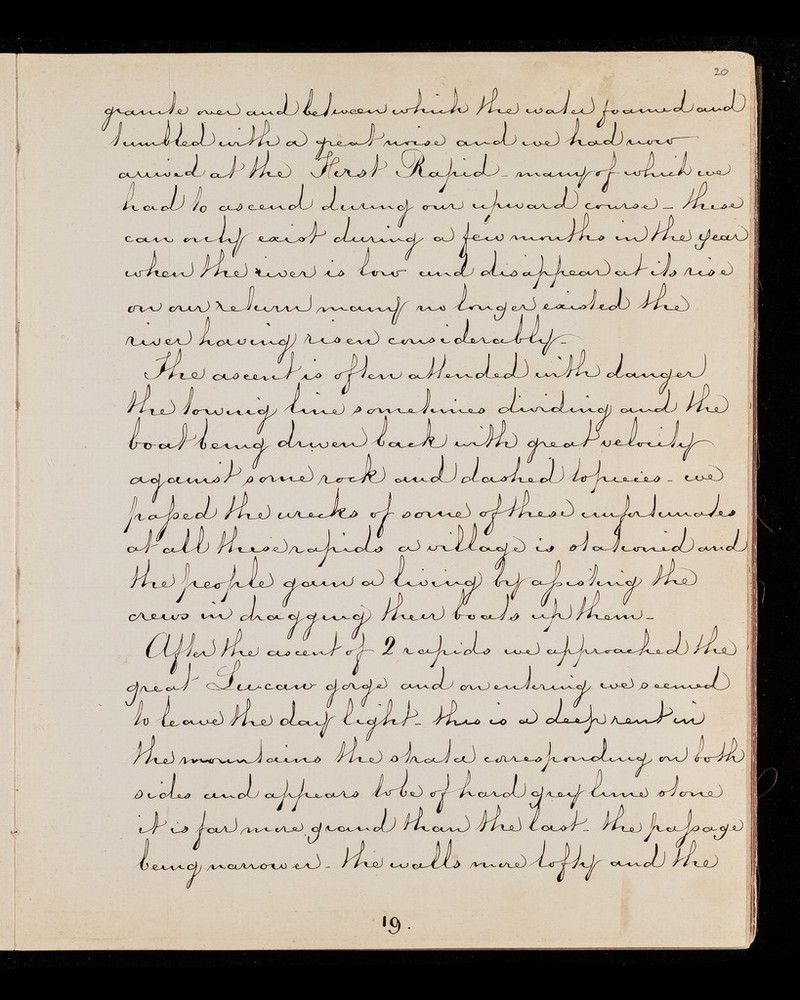 20
granite over and between which the water foamed and
tumbled with a great noise and we had now
arrived at the First Rapid - many of which we
had to ascend during our upward course - these
can only exist during a few months in the year
when the river is low and disappear at its rise
on our return many no longer existed the
river having risen considerably -
The ascent is often attended with danger
the towing line sometimes dividing and the
boat being driven back with great velocity
against some rock and dashed to pieces - we
passed the wrecks of some of these unfortunates
at all these rapids a village is stationed and
the people gain a living by assisting the
crews in dragging their boats up them -
After the ascent of 2 rapids we approached the
great Lucan gorge and on entering we seemed
to leave the day light - this is a deep rent in
the mountains the strata corresponding on both
sides and appears to be of hard grey lime stone
it is far more grand than the last - the passage
being narrower - the walls more lofty and the
19.